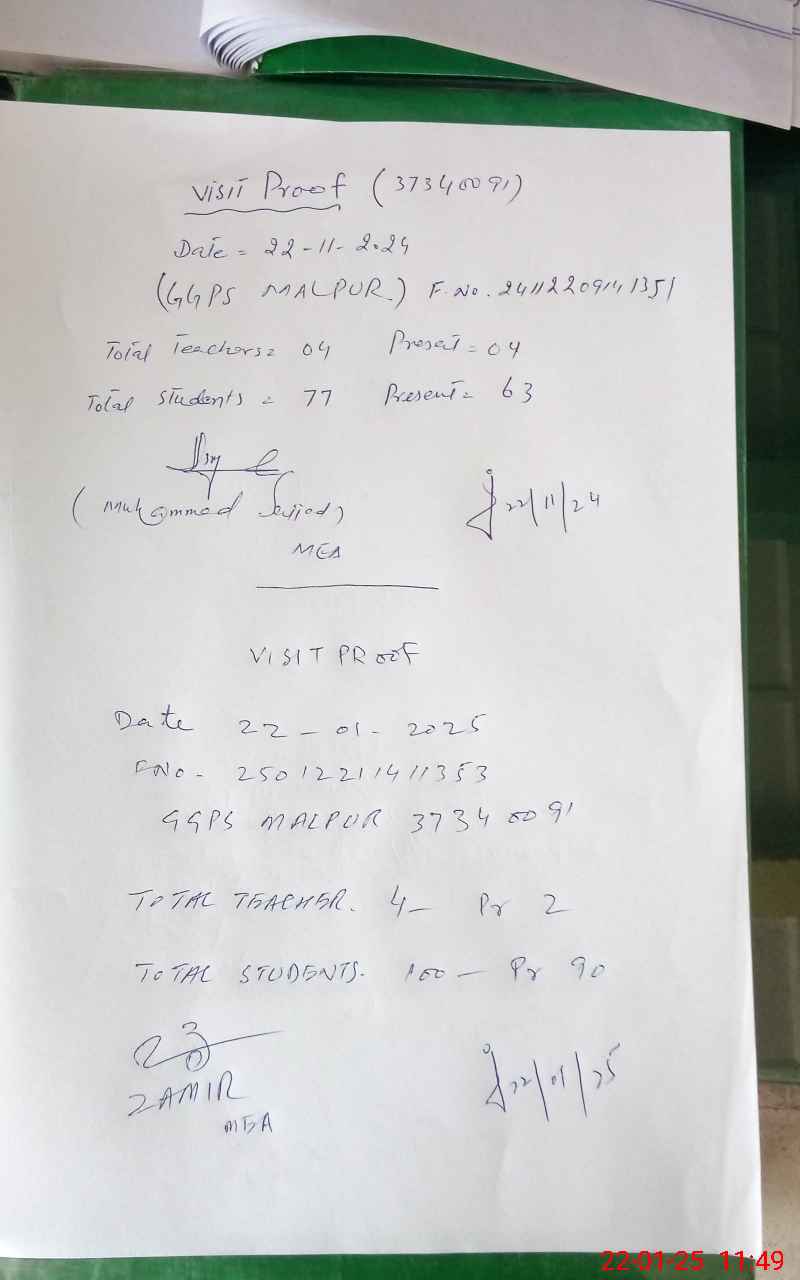 Visit Proof (37340091)
Date = 22-11-2024
(GGPS MALPUR) F.No. 24112209141351
Total Teachers = 04 Present = 04
Total Students = 77 Present = 63
(Muhammad Sajjad)
22/11/24
MEA
VISIT PROOF
Date 22-01-2025
F No - 25012211411353
GGPS MALPUR 37340091
TOTAL TEACHER. 4- Pr 2
TOTAL STUDENTS. 100 - Pr 90
22/01/25
ZAMIR
MEA
22-01-25 11:49